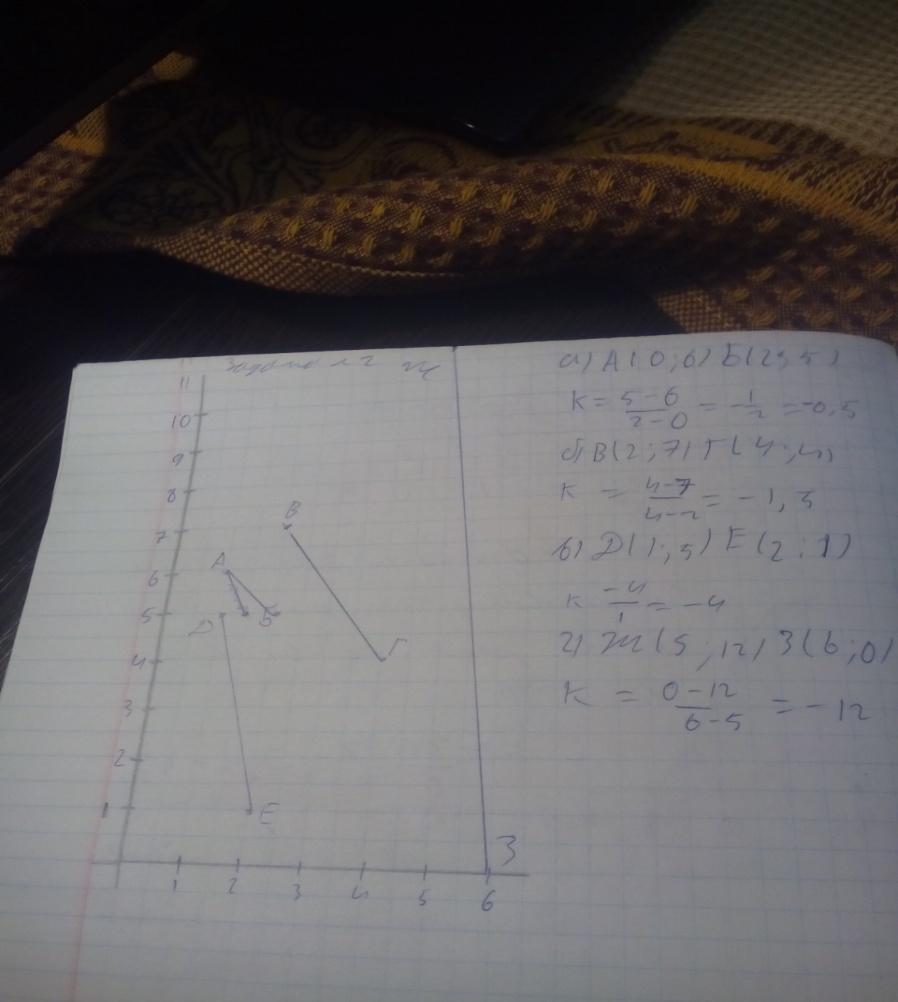 Задание №2 Ж
11
10
9
8
7
6
5
4
3
2
1
1 2 3 4 5 6
В
А
Б
D
Г
Е
З
а) А(0;6) Б(2;5)
K = 5-6 / 2-0 = -1/2 = -0,5
б) В(2;7) Г(4;4)
K = 4-7 / 4-2 = -1,5
в) D(1;5) E(2;1)
K -4/1 = -4
г) Ж(5;12) З(6;0)
K = 0-12 / 6-5 = -12